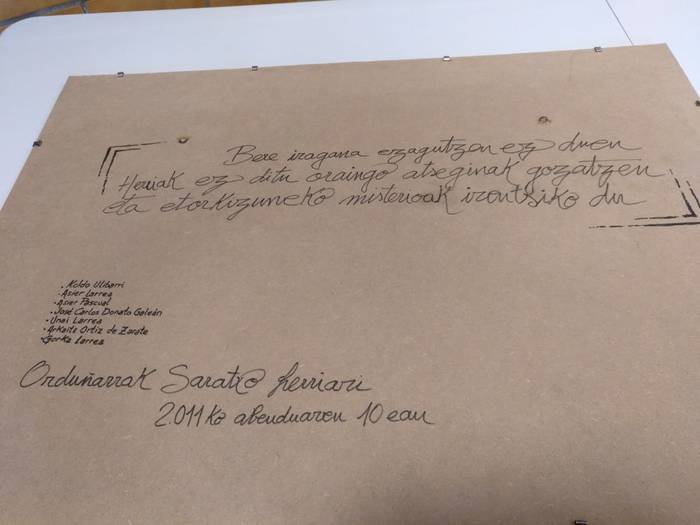 Bere iragana ezagutzen ez duen
Herriak ez ditu oraingo atseginak gozatzen
eta etorkizuneko misterioak irentsiko du
· Koldo Ulibarri
· Asier Larrea
· Asier Pascual
· José Carlos Donato Galeán
· Unai Larrea
· Arkaitz Ortiz de Zarate
· Gorka Larrea
Orduñarrak Saratxo herriari
2.011ko abenduaren 10 ean